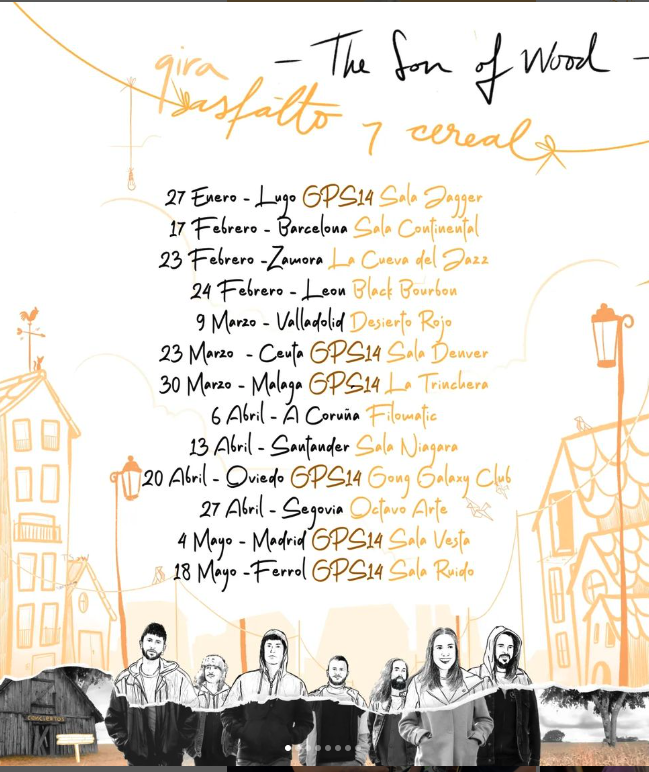 — The Son of Wood —
gira
asfalto y cereal
27 Enero - Lugo GPS14 Sala Jagger
17 Febrero - Barcelona Sala Continental
23 Febrero - Zamora La Cueva del Jazz
24 Febrero - Leon Black Bourbon
9 Marzo - Valladolid Desierto Rojo
23 Marzo - Ceuta GPS14 Sala Denver
30 Marzo - Malaga GPS14 La Trinchera
6 Abril - A Coruña Filomatic
13 Abril - Santander Sala Niagara
20 Abril - Oviedo GPS14 Gong Galaxy Club
27 Abril - Segovia Octavo Arte
4 Mayo - Madrid GPS14 Sala Vesta
18 Mayo - Ferrol GPS14 Sala Ruido
CONCIERTOS